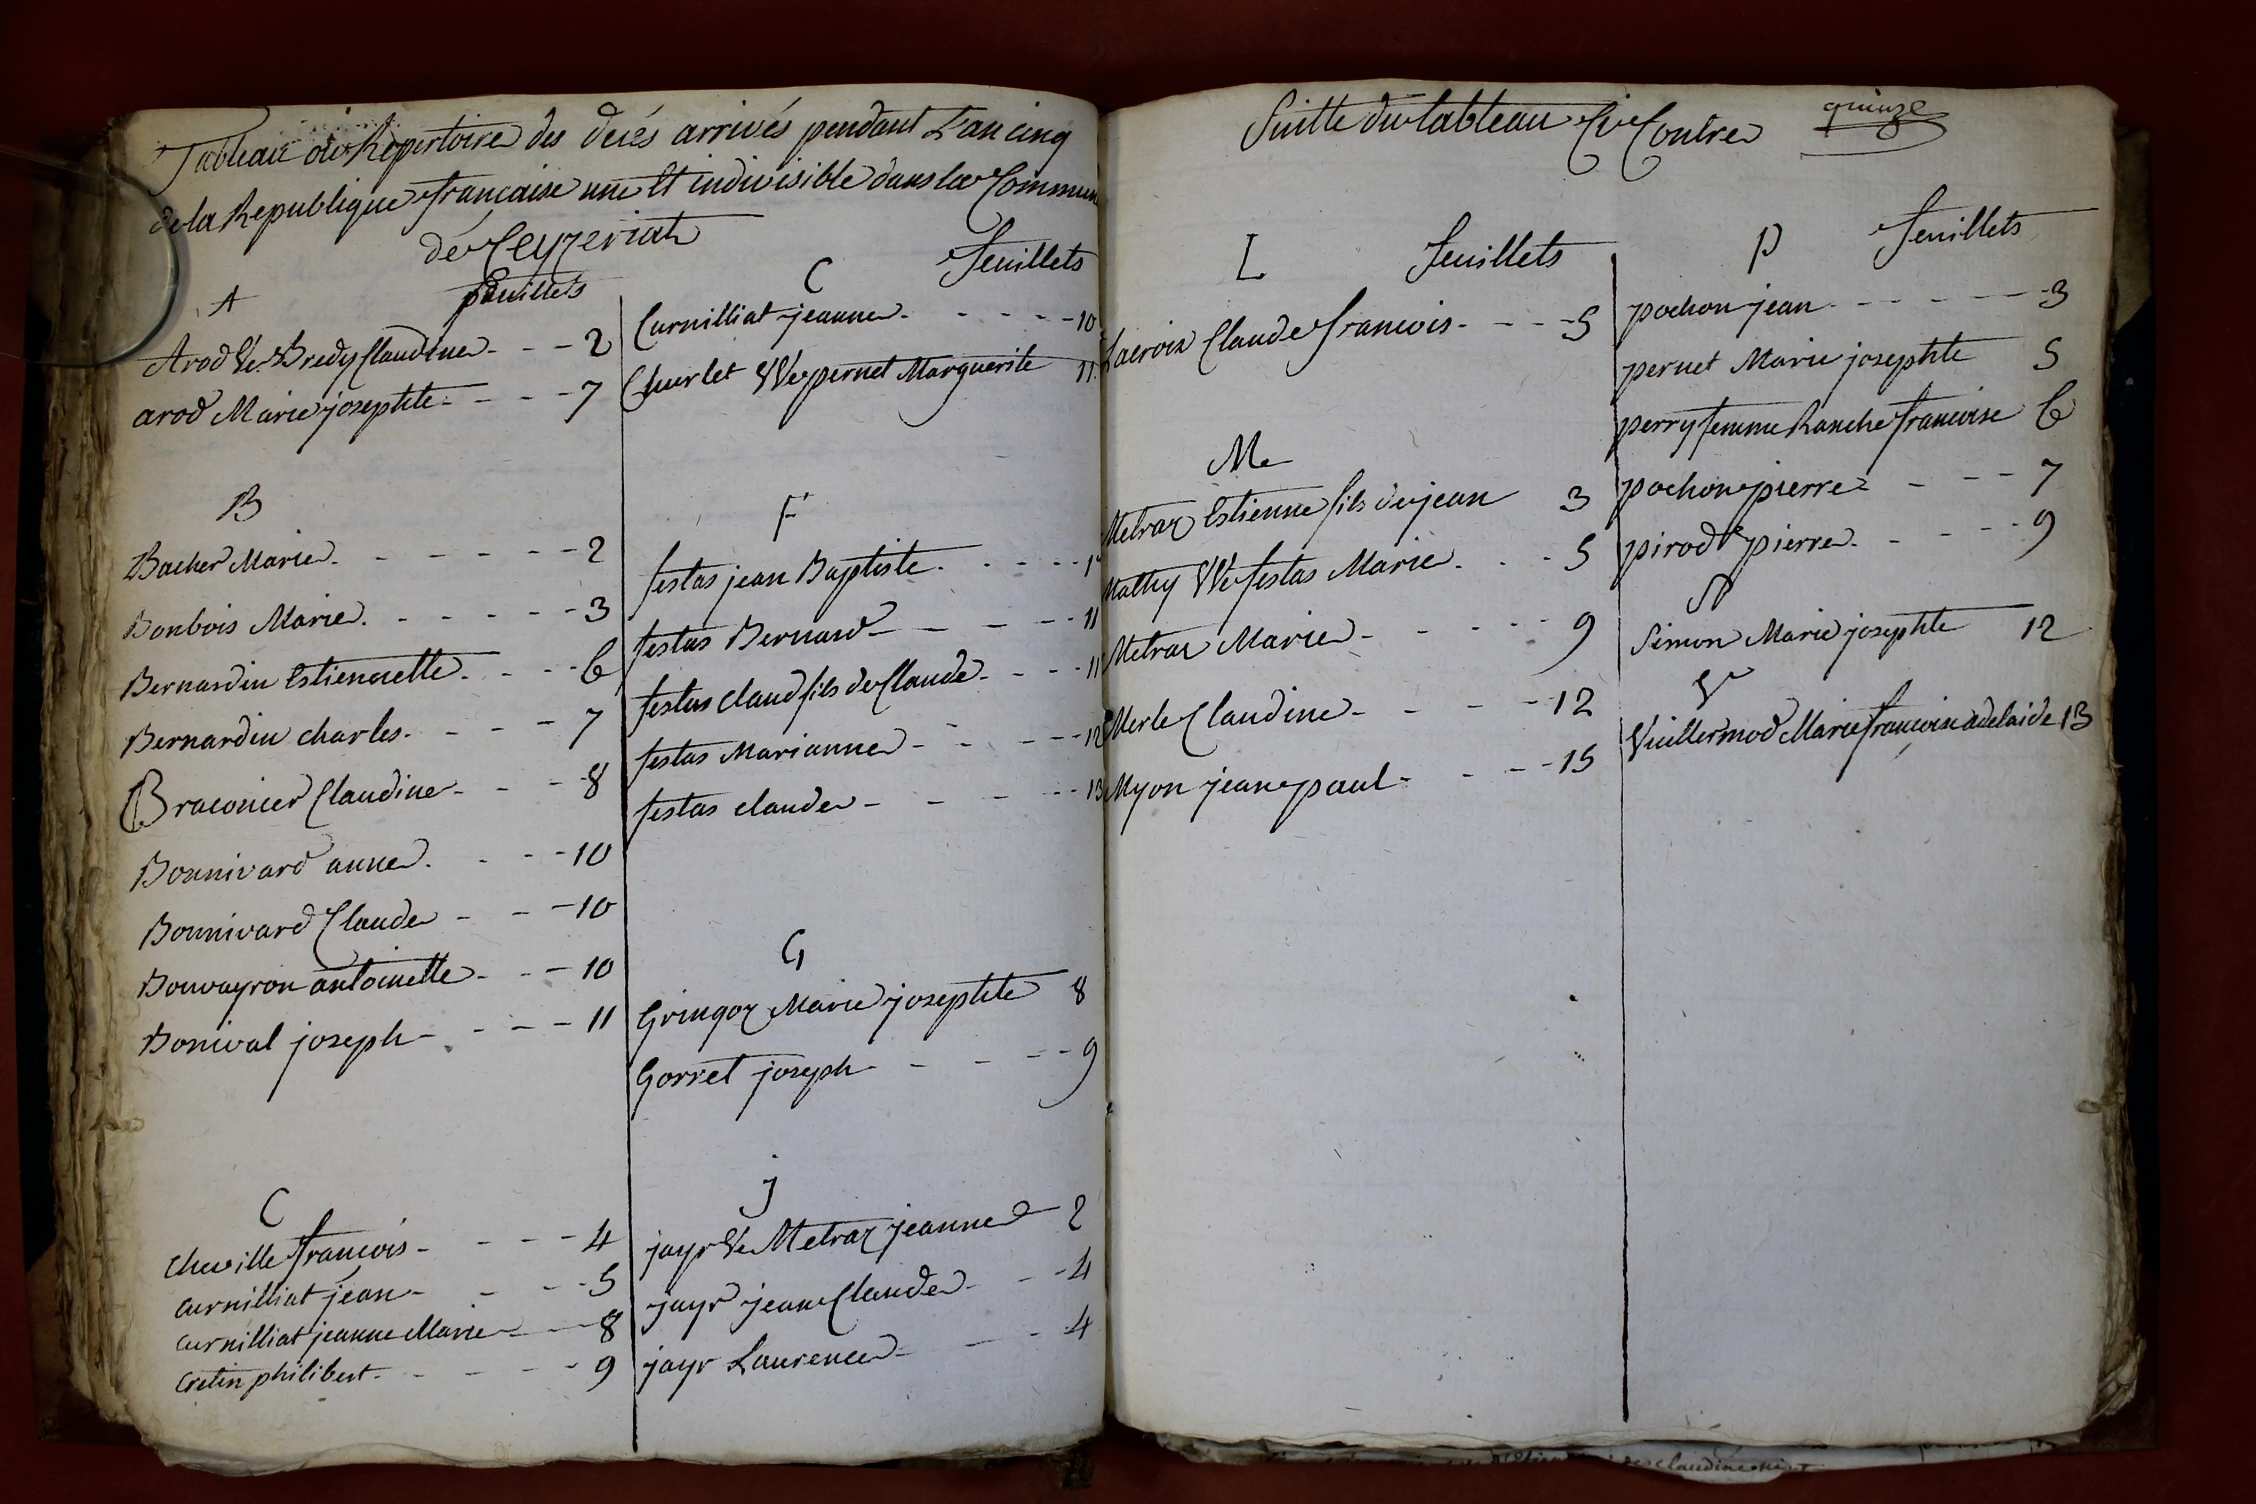 Tableau ou Repertoire des decés arrivés pendant L'an cinq
de la Republique francaise une Et indivisible dans la Commun
de Ceyzeriat
A feuillets
Arod Ve. Bredy Claudine - - - 2
arod Marie josephte - - - 7
B
Bacher Marie - - - - 2
Bonbois Marie - - - - 3
Bernardin Estiennette - - - 6
Bernardin charles - - - 7
Braconier Claudine - - - 8
Bonnivard anne - - - 10
Bonnivard Claude - - - 10
Bouvayron antoinette - - - 10
Bonival joseph - - - - 11
C
Cheville francois - - - - 4
curnilliat jean - - - - 5
curnilliat jeanne Marie - - - 8
cretin philibert - - - - 9
C feuillets
Curnilliat jeanne - - - - 10
Churlet Ve pernet Marguerite 11
F
festas jean Baptiste - - - - 1
festas Bernard - - - - 11
festas claud fils de Claude - - - 11
festas Marianne - - - - 12
festas claude - - - - 13
G
Gringoz Marie josephte 8
Gorret joseph - - - - 9
j
jayr Ve Metraz jeanne 2
jayr jean Claude - - - 4
jayr Laurence - - - 4
Suitte du tableau Ci Contre
quinze
L feuillets
Lacroix Claude francois - - - 5
M
Metraz Estienne fils de jean 3
Mathy Ve festas Marie - - - 5
Metraz Marie - - - - 9
Merle Claudine - - - - 12
Myon jean paul - - - - 15
P feuillets
pochon jean - - - - 3
pernet Marie josephte 5
perry femme Ranche francoise 6
pochon pierre - - - 7
pirod pierre - - - - 9
S
Simon Marie josephte 12
V
Vuillermod Marie francoise adelaide 13